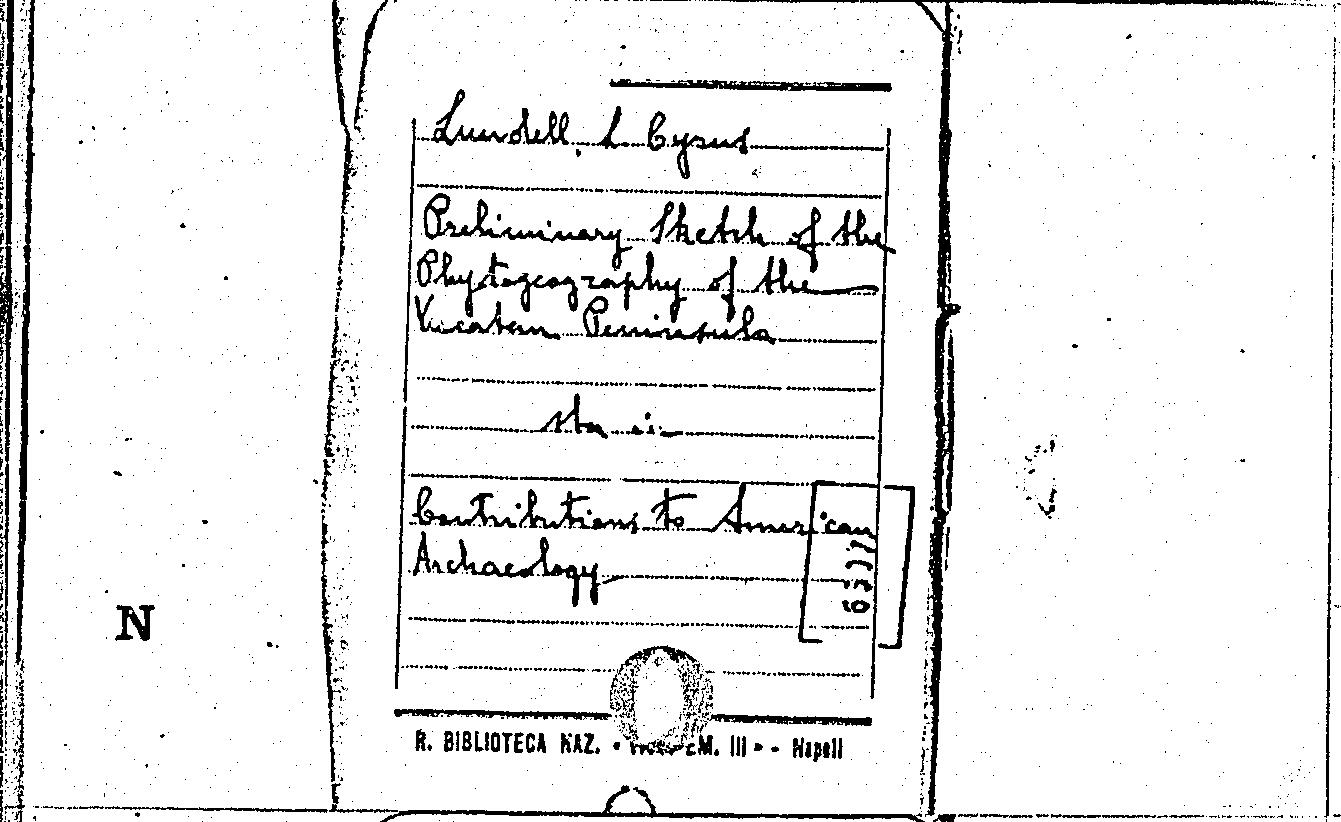 Lundell, L Cyrus
Preliminary Sketch of the
Phytogeography of the
Yucatan Peninsula
sta in
Contributions to American
Archaeology
N
R. BIBLIOTECA NAZ. • EM. III • - Napoli